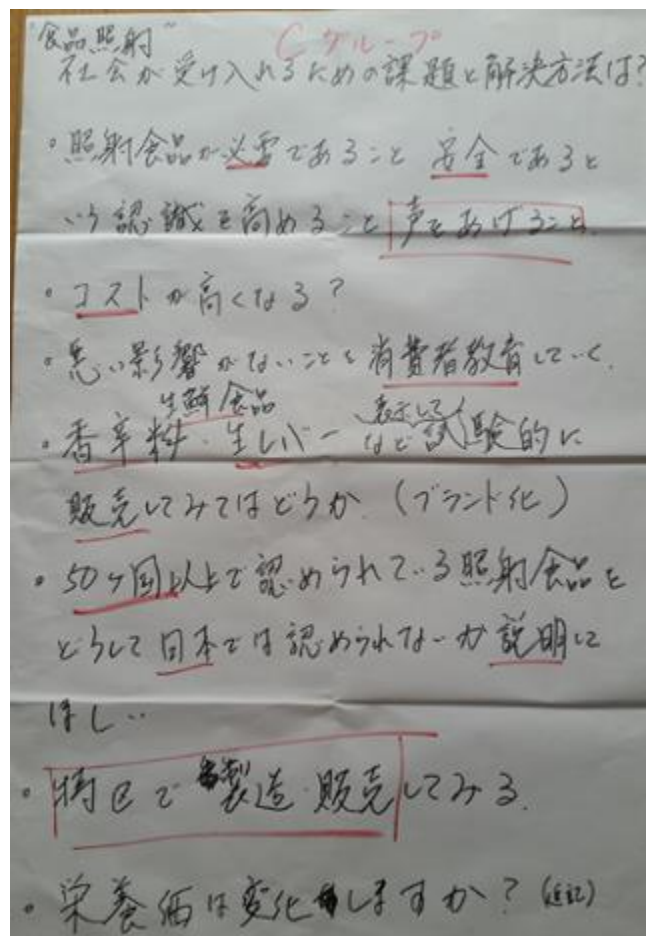 "食品照射" Cグループ
社会が受け入れるための課題と解決方法は?
・照射食品が必要であること 安全であると
いう認識を高めること 声をあげること
・コストが高くなる?
・悪い影響がないことを消費者教育していく
生鮮食品 表示して
・香辛料・生レバーなど試験的に
販売してみてはどうか.(ブランド化)
・50ヶ国以上で認められている照射食品を
どうして日本では認められないか説明して
ほしい
・特区で製造・販売してみる.
・栄養価は変化しますか?(追記)